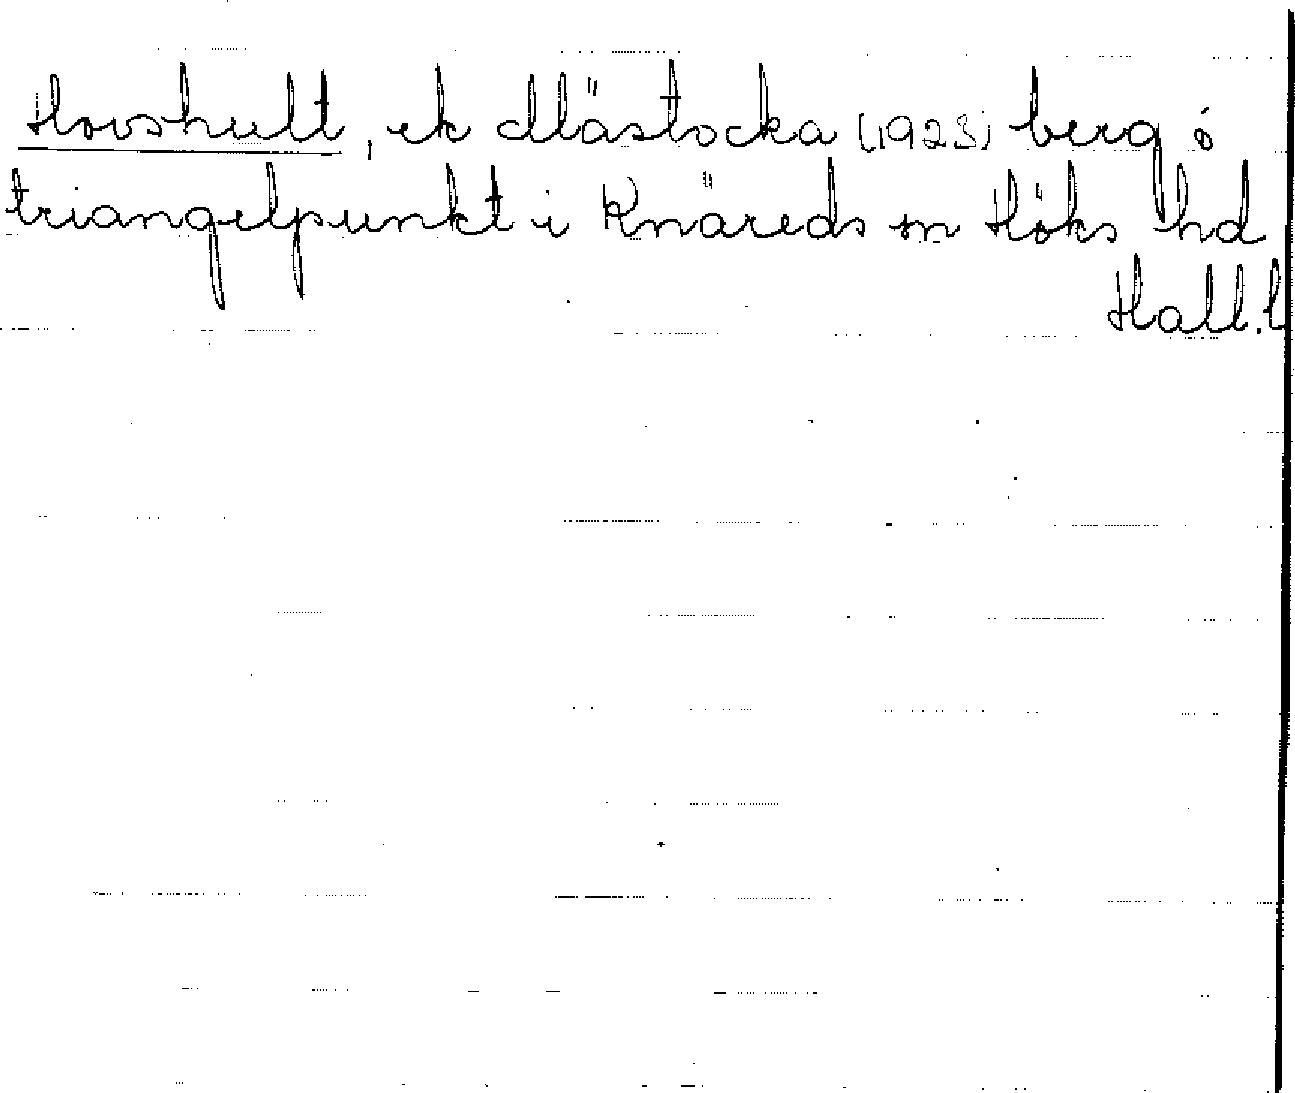 Hovshult, ek Mästocka (1923) berg ö
triangelpunkt i Knäreds sn Höks hd
Hall. l